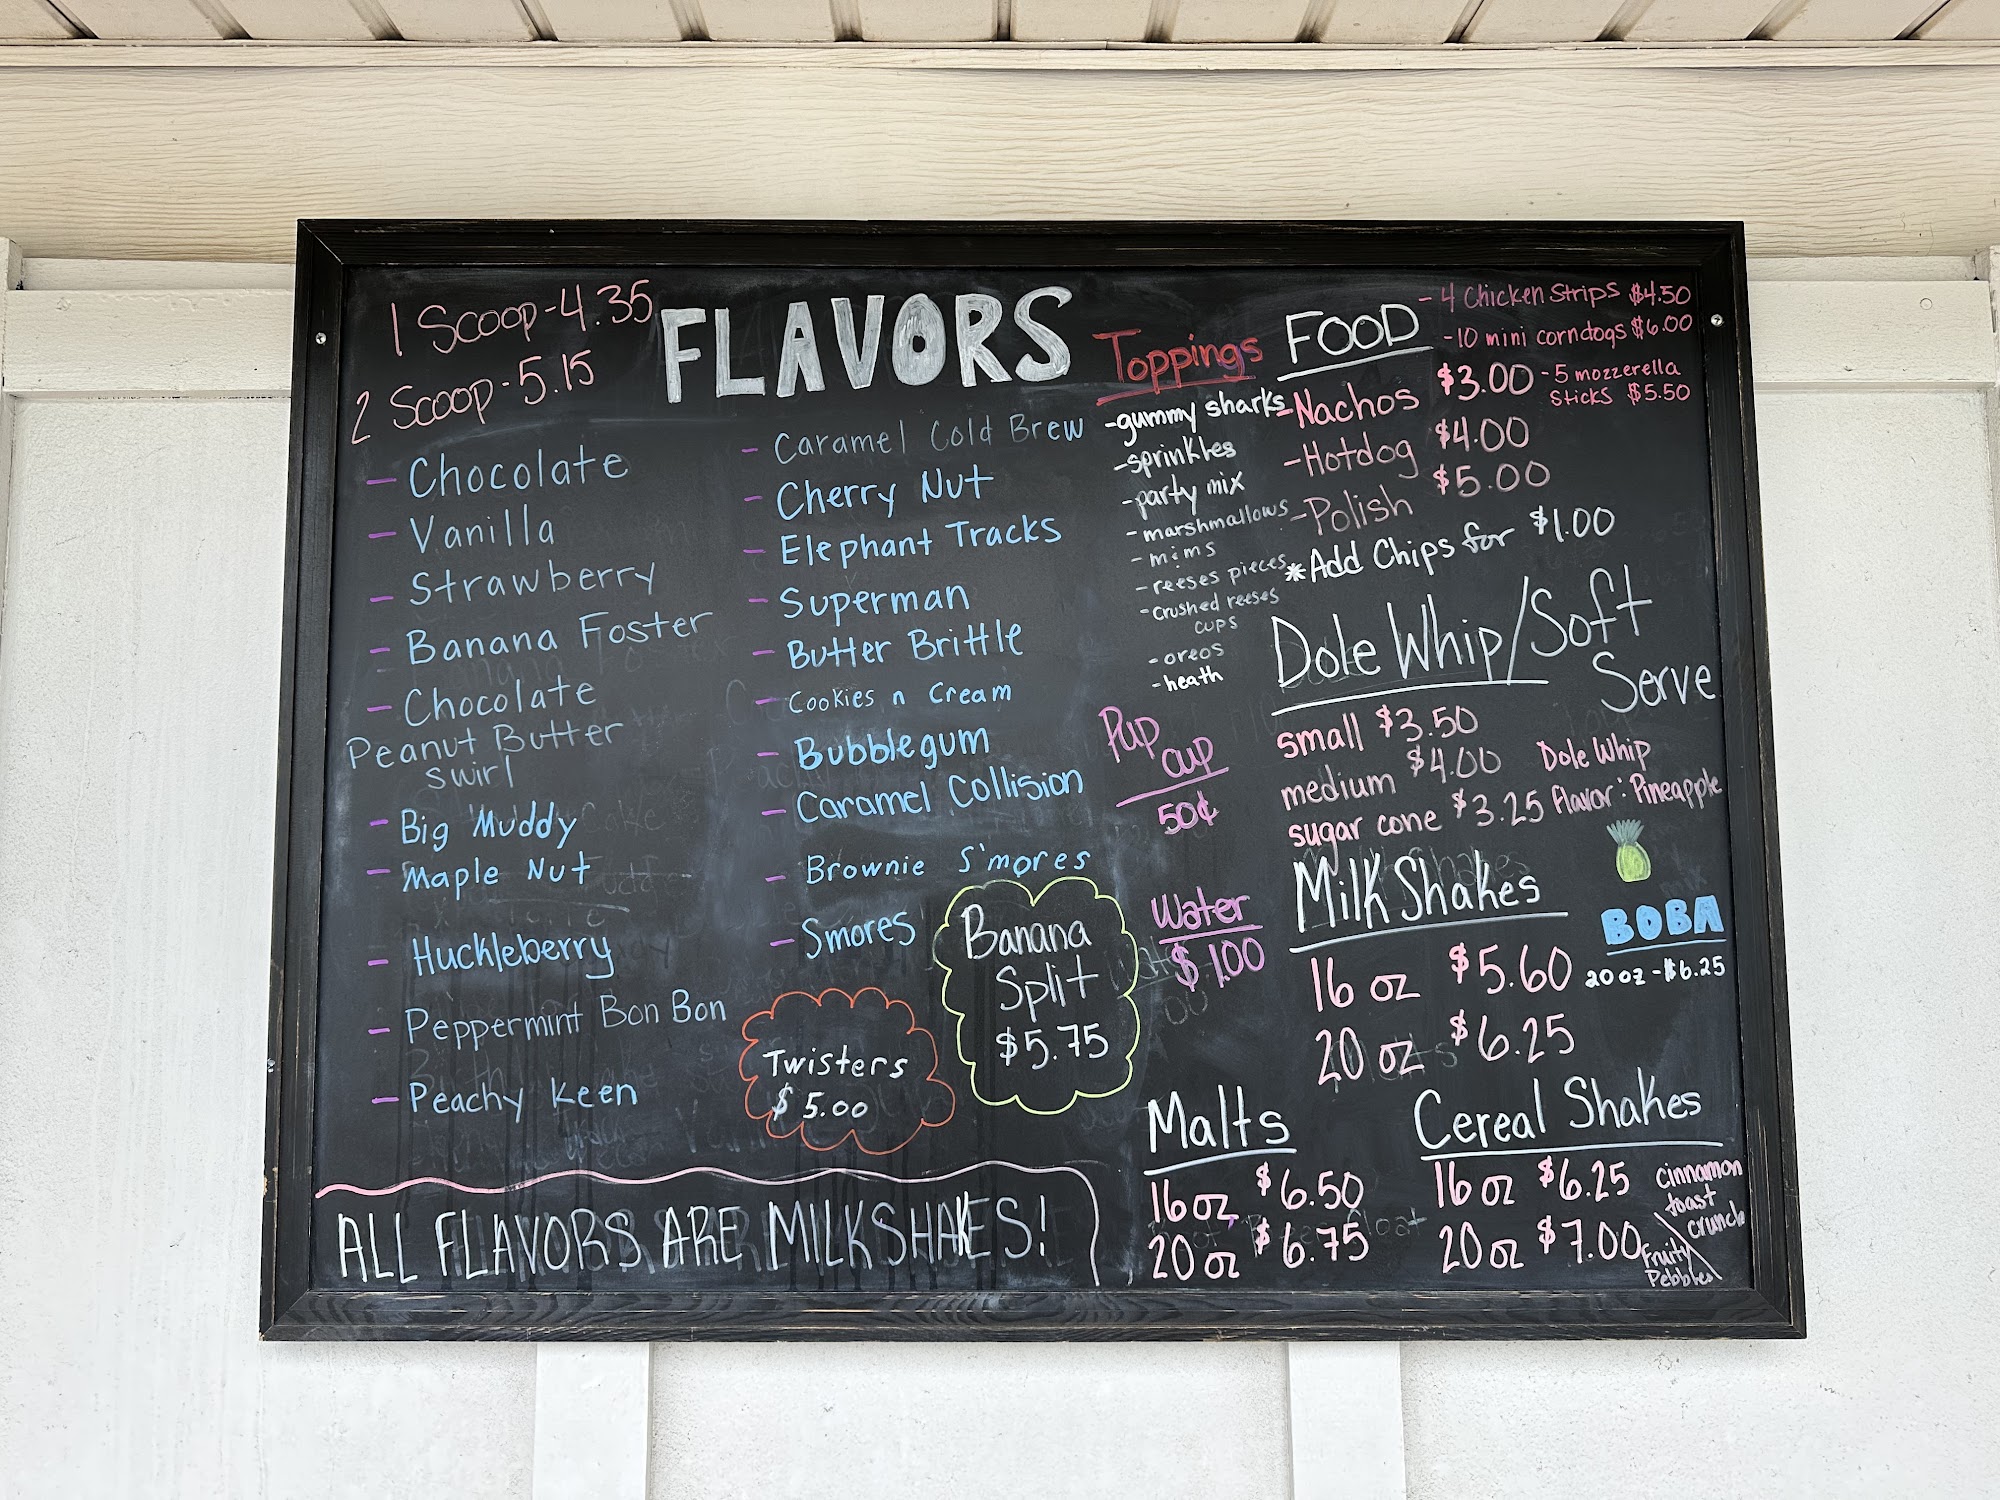 1 Scoop - 4.35
2 Scoop - 5.15
FLAVORS
- Chocolate
- Vanilla
- Strawberry
- Banana Foster
- Chocolate
Peanut Butter
swirl
- Big Muddy
- Maple Nut
- Huckleberry
- Peppermint Bon Bon
- Peachy Keen
- Caramel Cold Brew
- Cherry Nut
- Elephant Tracks
- Superman
- Butter Brittle
- Cookies n Cream
- Bubblegum
- Caramel Collision
- Brownie S'mores
- Smores
Twisters
$5.00
Banana
Split
$5.75
ALL FLAVORS ARE MILKSHAKES!
Toppings
- gummy sharks
- sprinkles
- party mix
- marshmallows
- m&ms
- reeses pieces
- crushed reeses
cups
- oreos
- heath
Pup
cup
50¢
Water
$1.00
FOOD
- 4 Chicken Strips $4.50
- 10 mini corndogs $6.00
- 5 mozzerella
sticks $5.50
- Nachos $3.00
- Hotdog $4.00
- Polish $5.00
*Add Chips for $1.00
Dole Whip/Soft
Serve
small $3.50
medium $4.00
sugar cone $3.25
Dole Whip
flavor: Pineapple
MilkShakes
16 oz $5.60
20 oz $6.25
BOBA
20 oz - $6.25
Malts
16 oz $6.50
20 oz $6.75
Cereal Shakes
16 oz $6.25
20 oz $7.00
cinnamon
toast
crunch
Fruity
Pebbles